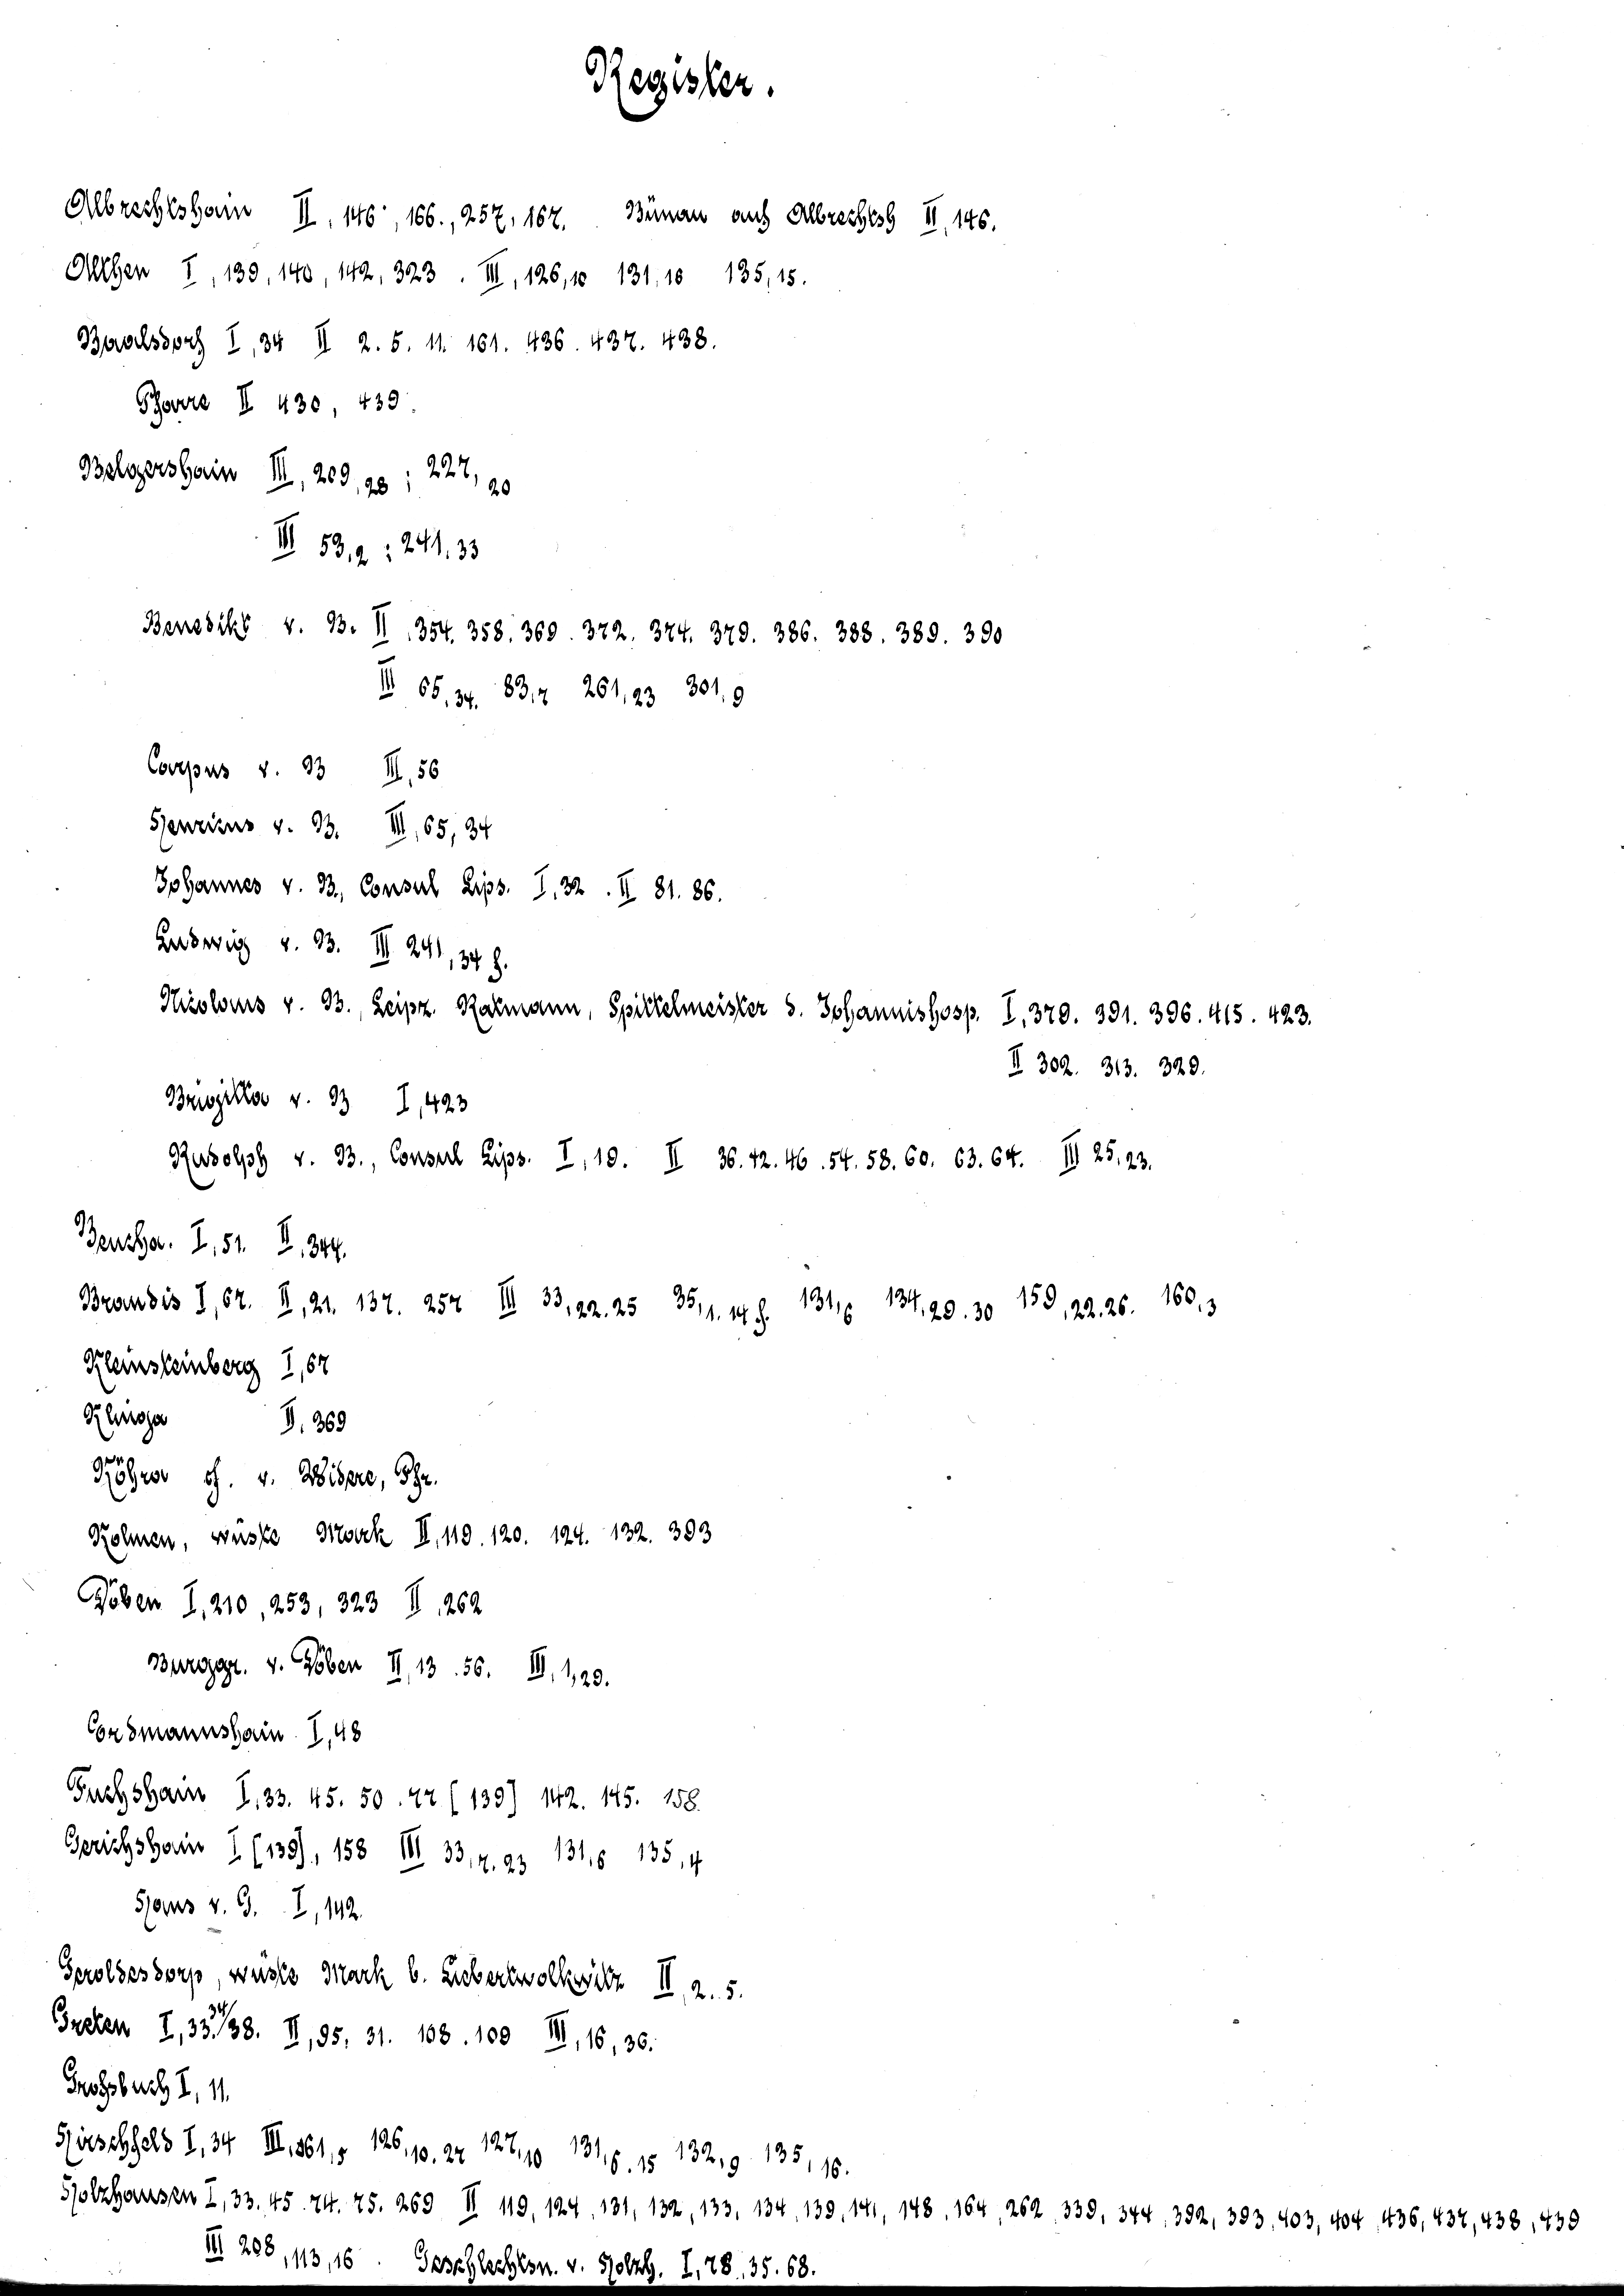 Register.
Albrechtshain II, 146, 166., 257, 167. Bünau auf Albrechtsh II, 146.
Althen I, 139, 140, 142, 323. III, 126,10 131,16 135,15.
Baalsdorf I, 34 II 2. 5. 11. 161. 436. 437. 438.
Pfarre II 430, 439.
Belgershain III, 209,28; 227,20
III 53,2; 241,33
Benedikt v. B. II, 354. 358. 369. 372. 374. 379. 386. 388. 389. 390
III 65,34. 83,7 261,23 301,9
Corpus v. B III, 56
Henricus v. B. III, 65, 34
Johannes v. B., Consul Lips. I, 32. II 81. 86.
Ludwig v. B. III 241,34 f.
Nicolaus v. B., Leipz. Ratmann, Spittelmeister d. Johannishosp. I, 379. 391. 396. 415. 423.
II 302. 313. 329.
Brigitta v. B I, 423
Rudolph v. B., Consul Lips. I, 19. II 36. 42. 46. 54. 58. 60. 63. 64. III 25,23.
Beucha. I, 51. II, 344.
Brandis I, 67. II, 21. 137. 257 III 33,22.25 35,1.14 f. 131,6 134,29.30 159,22.26. 160,3
Kleinsteinberg I, 67
Klinga II, 369
Köhra cf. v. Widere, Thr.
Kolmen, wüste Mark II, 119. 120. 124. 132. 393
Döben I, 210, 253, 323 II, 262
Burggr. v. Döben II, 13. 56. III, 1,29.
Cordmannshain I, 48
Fuchshain I, 33. 45. 50. 77 [139] 142. 145. 158
Gerichshain I [139], 158 III 33,7.23 131,6 135,4
Hans v. G. I, 142.
Geroldesdorp, wüste Mark b. Liebertwolkwitz II, 2. 5.
Greten I, 33. 34/38. II, 95, 31. 108. 109 III, 16, 36.
Großbuch I, 11.
Hirschfeld I, 34 III, 61,5 126,10.27 127,10 131,6.15 132,9 135,16.
Holzhausen I, 33. 45. 74. 75. 269 II 119, 124, 131, 132, 133, 134, 139, 141, 148, 164, 262, 339, 344, 392, 393, 403, 404, 436, 437, 438, 439
III 208, 113, 16. Geschlechtsn. v. Holzh. I, 28, 35. 68.